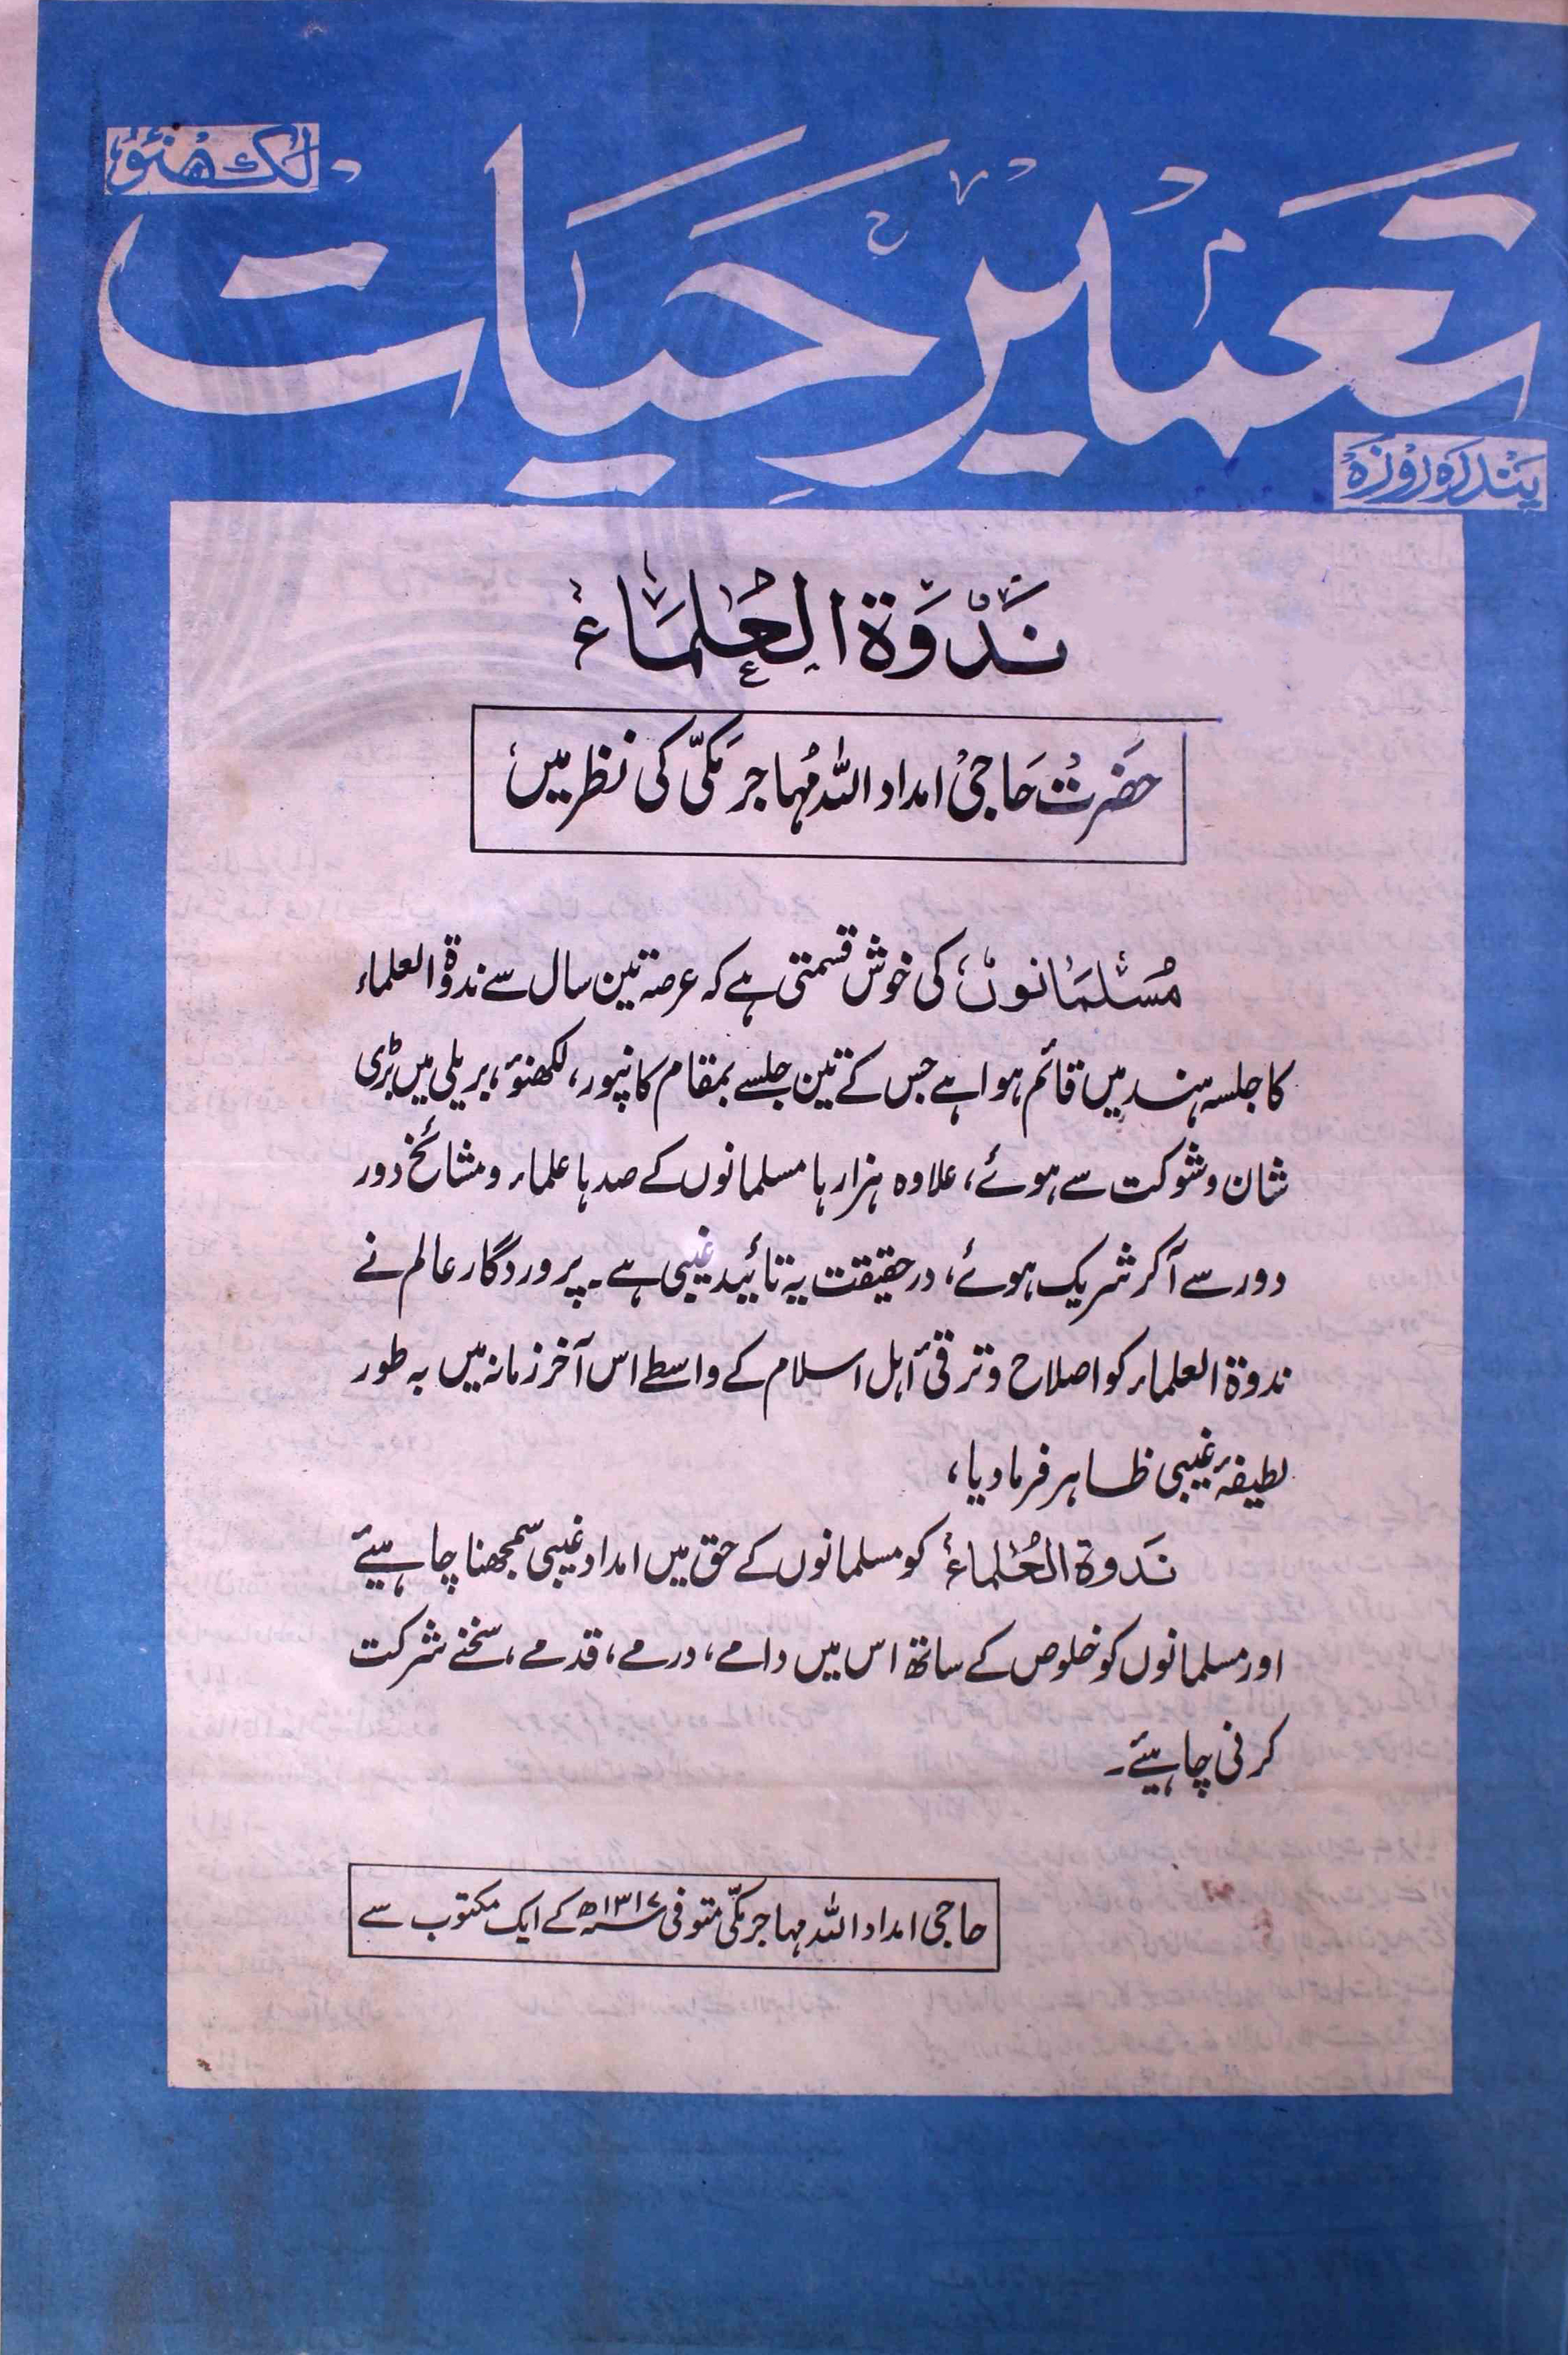 لکھنؤ
تعمیر حیات
پندرہ روزہ
نَدْوَةُ العُلَمَاءِ
حضرت حاجی امداد اللہ مُہاجر مکیّ کی نظر میں
مُسلمانوں کی خوش قسمتی ہے کہ عرصہ تین سال سے ندوۃ العلماء
کا جلسہ ہند میں قائم ہوا ہے جس کے تین جلسے بمقام کانپور، لکھنؤ، بریلی میں بڑی
شان و شوکت سے ہوئے، علاوہ ہزارہا مسلمانوں کے صدہا علماء و مشائخ دور
دور سے آکر شریک ہوئے، درحقیقت یہ تائید غیبی ہے۔ پروردگار عالم نے
ندوۃ العلماء کو اصلاح و ترقیٔ اہل اسلام کے واسطے اس آخر زمانہ میں بہ طور
لطیفۂ غیبی ظاہر فرما دیا،
نَدوۃ العُلماء کو مسلمانوں کے حق میں امداد غیبی سمجھنا چاہیئے
اور مسلمانوں کو خلوص کے ساتھ اس میں دامے، درمے، قدمے، سخنے شرکت
کرنی چاہیئے۔
حاجی امداد اللہ مہاجر مکیّ متوفی ۱۳۱۷ھ کے ایک مکتوب سے